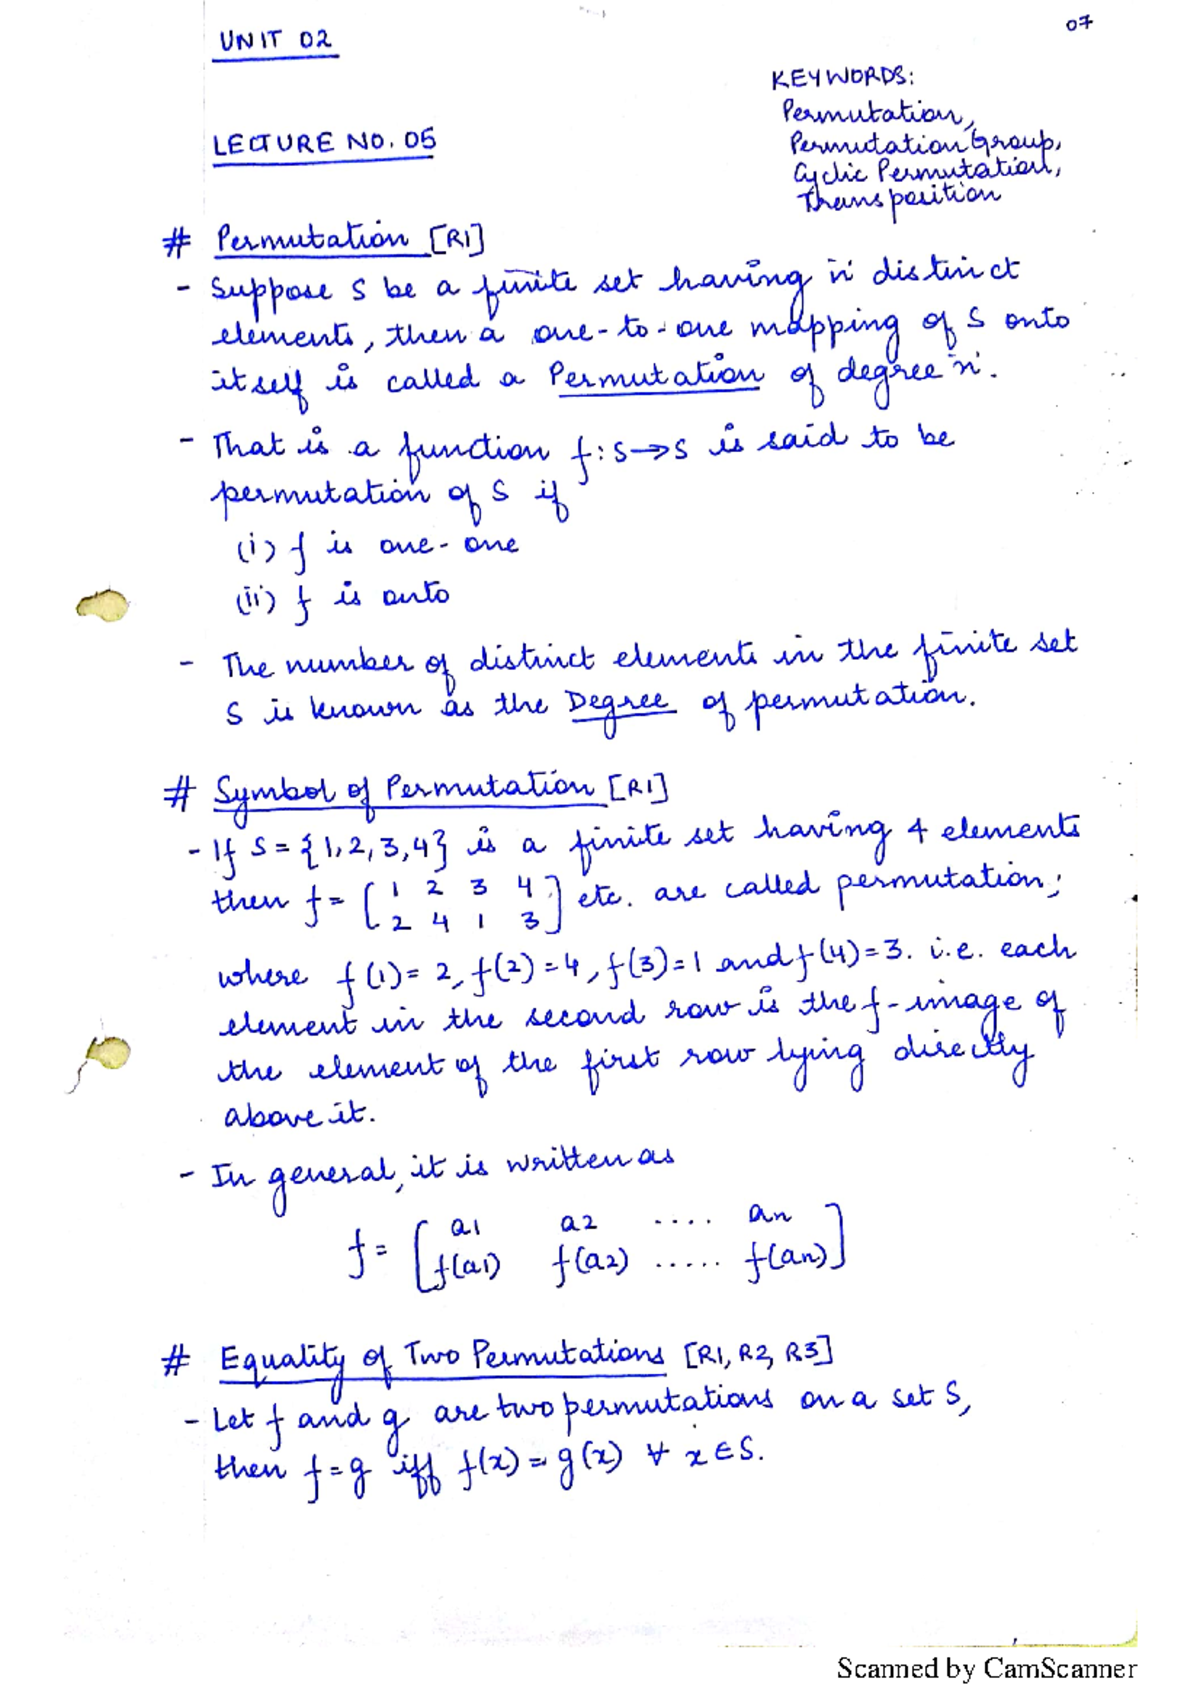 07
UNIT 02
KEYWORDS:
Permutation,
Permutation Group,
Cyclic Permutation,
Transposition
LECTURE NO. 05
# Permutation [R1]
- Suppose S be a finite set having 'n' distinct
elements, then a one-to-one mapping of S onto
itself is called a Permutation of degree 'n'.
- That is a function f: S→S is said to be
permutation of S if
(i) f is one-one
(ii) f is onto
- The number of distinct elements in the finite set
S is known as the Degree of permutation.
# Symbol of Permutation [R1]
- If S = {1, 2, 3, 4} is a finite set having 4 elements
then f = [1 2 3 4
2 4 1 3] etc. are called permutation;
where f(1) = 2, f(2) = 4, f(3) = 1 and f(4) = 3. i.e. each
element in the second row is the f-image of
the element of the first row lying directly
above it.
- In general, it is written as
f = [a1 a2 .... an
f(a1) f(a2) ..... f(an)]
# Equality of Two Permutations [R1, R2, R3]
- Let f and g are two permutations on a set S,
then f = g iff f(x) = g(x) ∀ x ∈ S.
Scanned by CamScanner